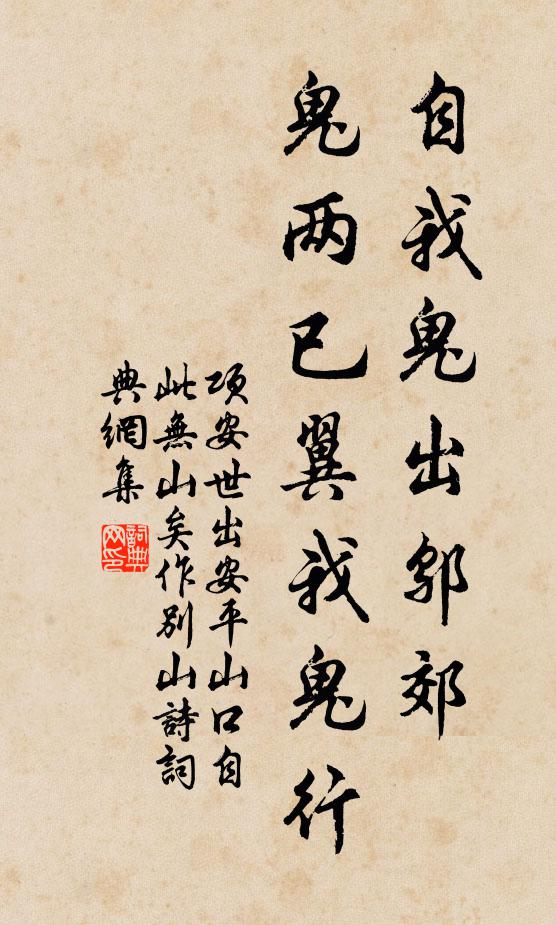 自我鬼出邬郊
鬼两已翼我鬼行
项安世出安平山口自
此無山矣作别山詩詞
典網集
詞典
网印